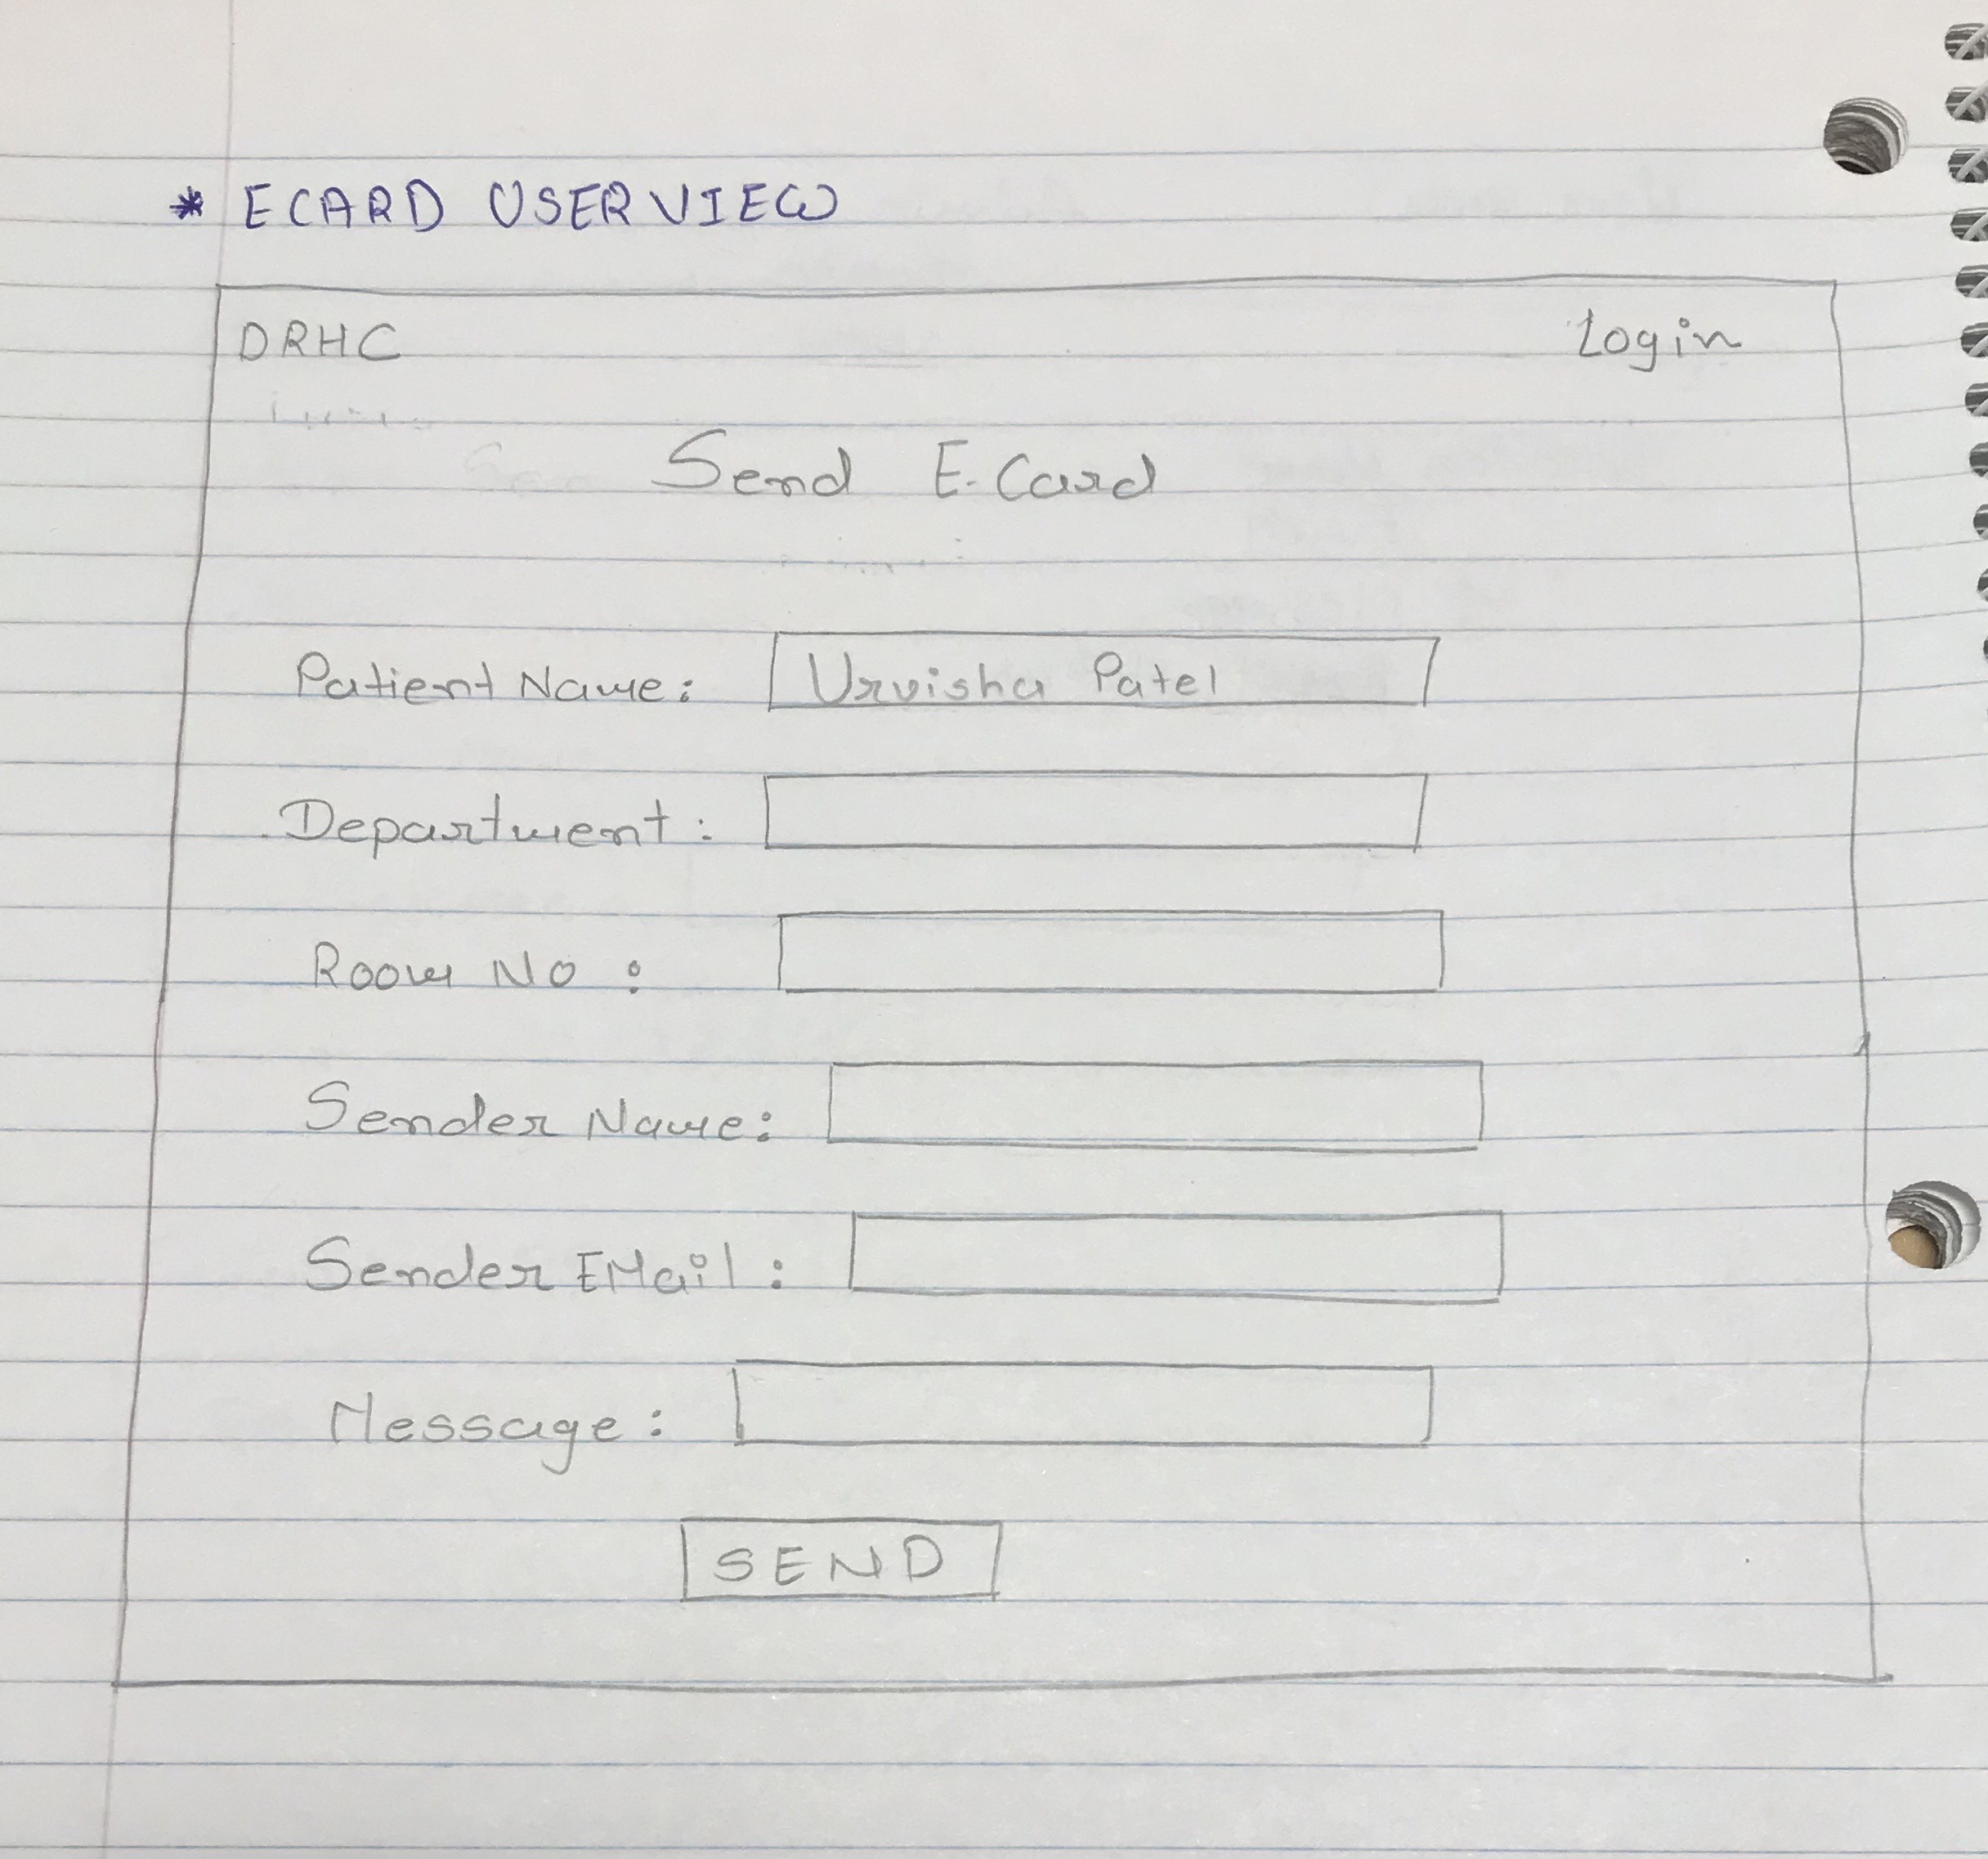 * ECARD USERVIEW
DRHC Login
Send E-Card
Patient Name: Urvisha Patel
Department:
Room NO:
Sender Name:
Sender EMail:
Message:
SEND